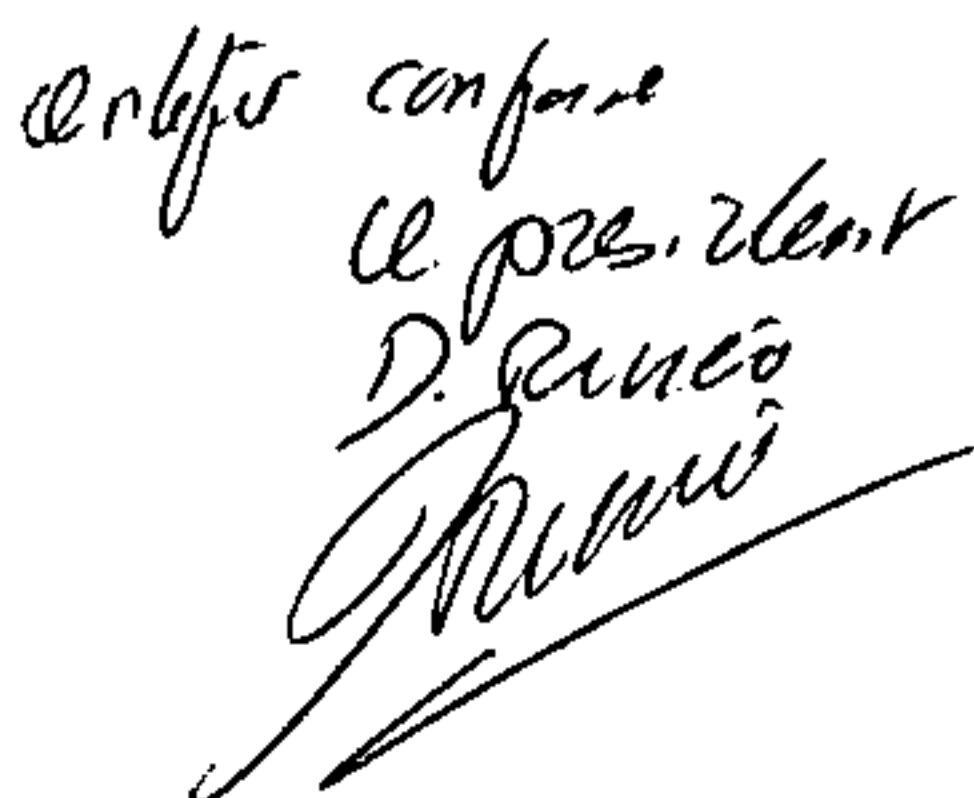 certifié conforme
le président
D.